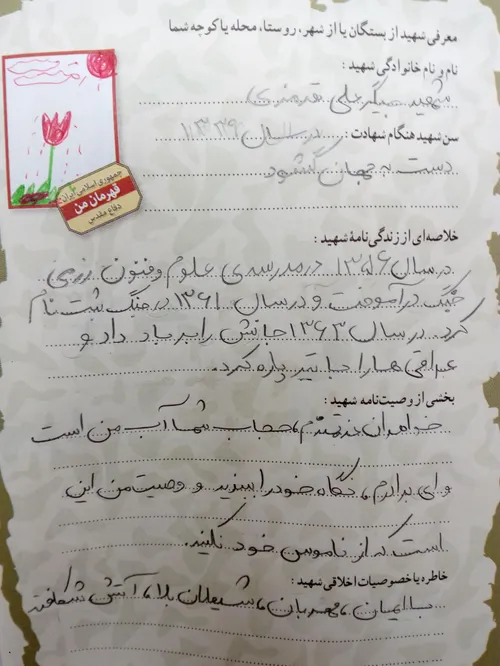 معرفی شهید از بستگان یا از شهر، روستا، محله یا کوچه شما
نام و نام خانوادگی شهید :
شهید
سن شهید هنگام شهادت : در سال ۱۳۳۹
دست به جهان گشود
جمهوری اسلامی ایران
قهرمان من
دفاع مقدس
خلاصه‌ای از زندگی‌نامهٔ شهید :
در سال ۱۳۵۶ در مدرسه‌ی علوم و فنون زرهی
جنگ در آموخت و در سال ۱۳۶۱ در جنگ ثبت نام
کرد. در سال ۱۳۶۳ جانش را بر باد داد و
عراقی ها را با تیر پاره کرد.
بخشی از وصیت‌نامه شهید :
خواهران عزیزم، حجاب شما آب من است
و ای برادرم، نگاه خود را ببندید و وصیت من این
است که از ناموس خود نگیند.
خاطره یا خصوصیات اخلاقی شهید :
با ایمان، مهربان، شیطان بلا، آتش